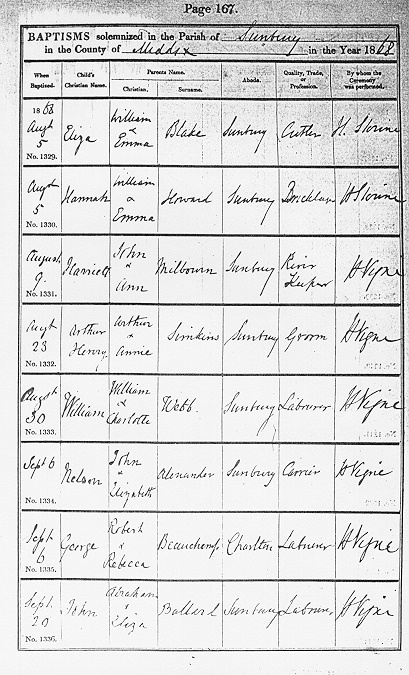 Page 167.
BAPTISMS solemnized in the Parish of Sunbury
in the County of Middsx in the Year 1868
When Baptized. Child's Christian Name. Parents Name. Abode. Quality, Trade, or Profession. By whom the Ceremony was performed.
Christian. Surname.
1868 Augt 5 No. 1329. Eliza William & Emma Blake Sunbury Cutler H.
Augst 5 No. 1330. Hannah William & Emma Howard Sunbury Bricklayer H
August 9. No. 1331. Harriett John & Ann Milbourn Sunbury River Keeper H Vigne
Augt 23 No. 1332. Arthur Henry Arthur & Annie Simkins Sunbury Groom H Vigne
August 30 No. 1333. William William & Charlotte Webb. Sunbury Labourer H Vigne
Sept 6 No. 1334. Nelson John & Elizabeth Alexander Sunbury Carrier H Vigne
Sept. 6 No. 1335. George Robert & Rebecca Beauchamp Charlton Labourer H Vigne
Sept. 20 No. 1336. John Abraham & Eliza Ballard Sunbury Labourer H Vigne